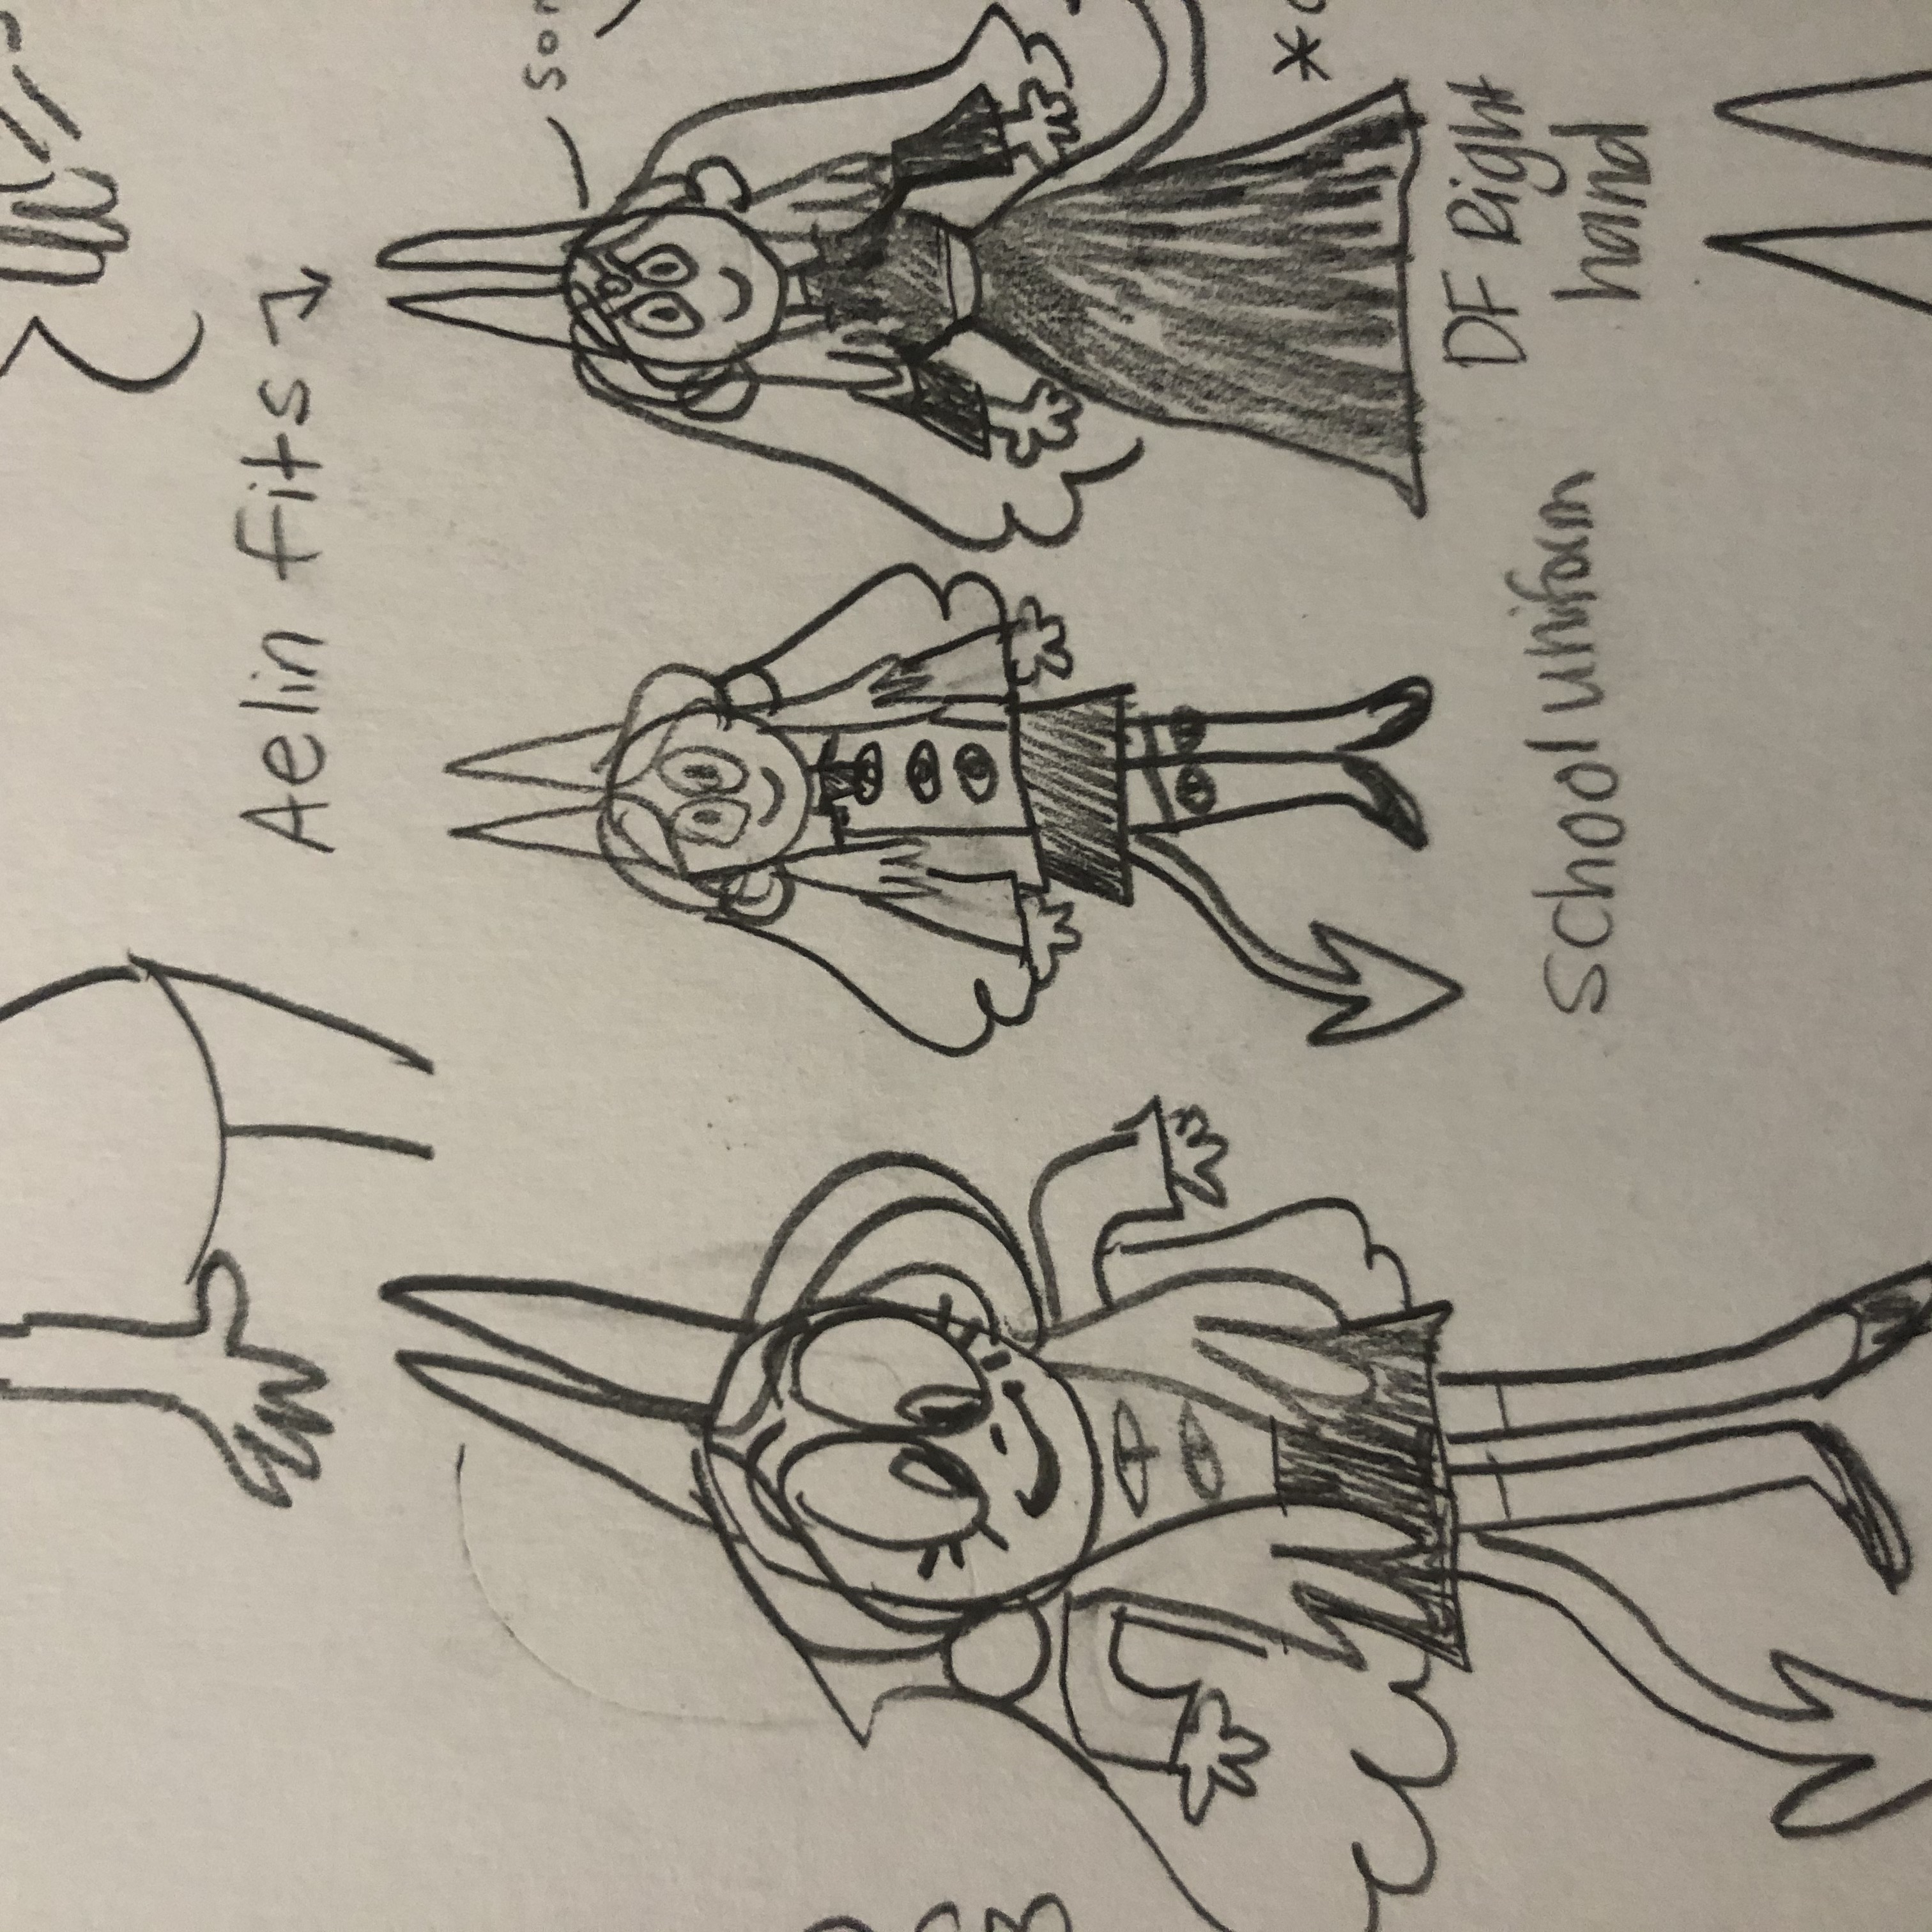 Aelin fits
school uniform
DF Right
hand